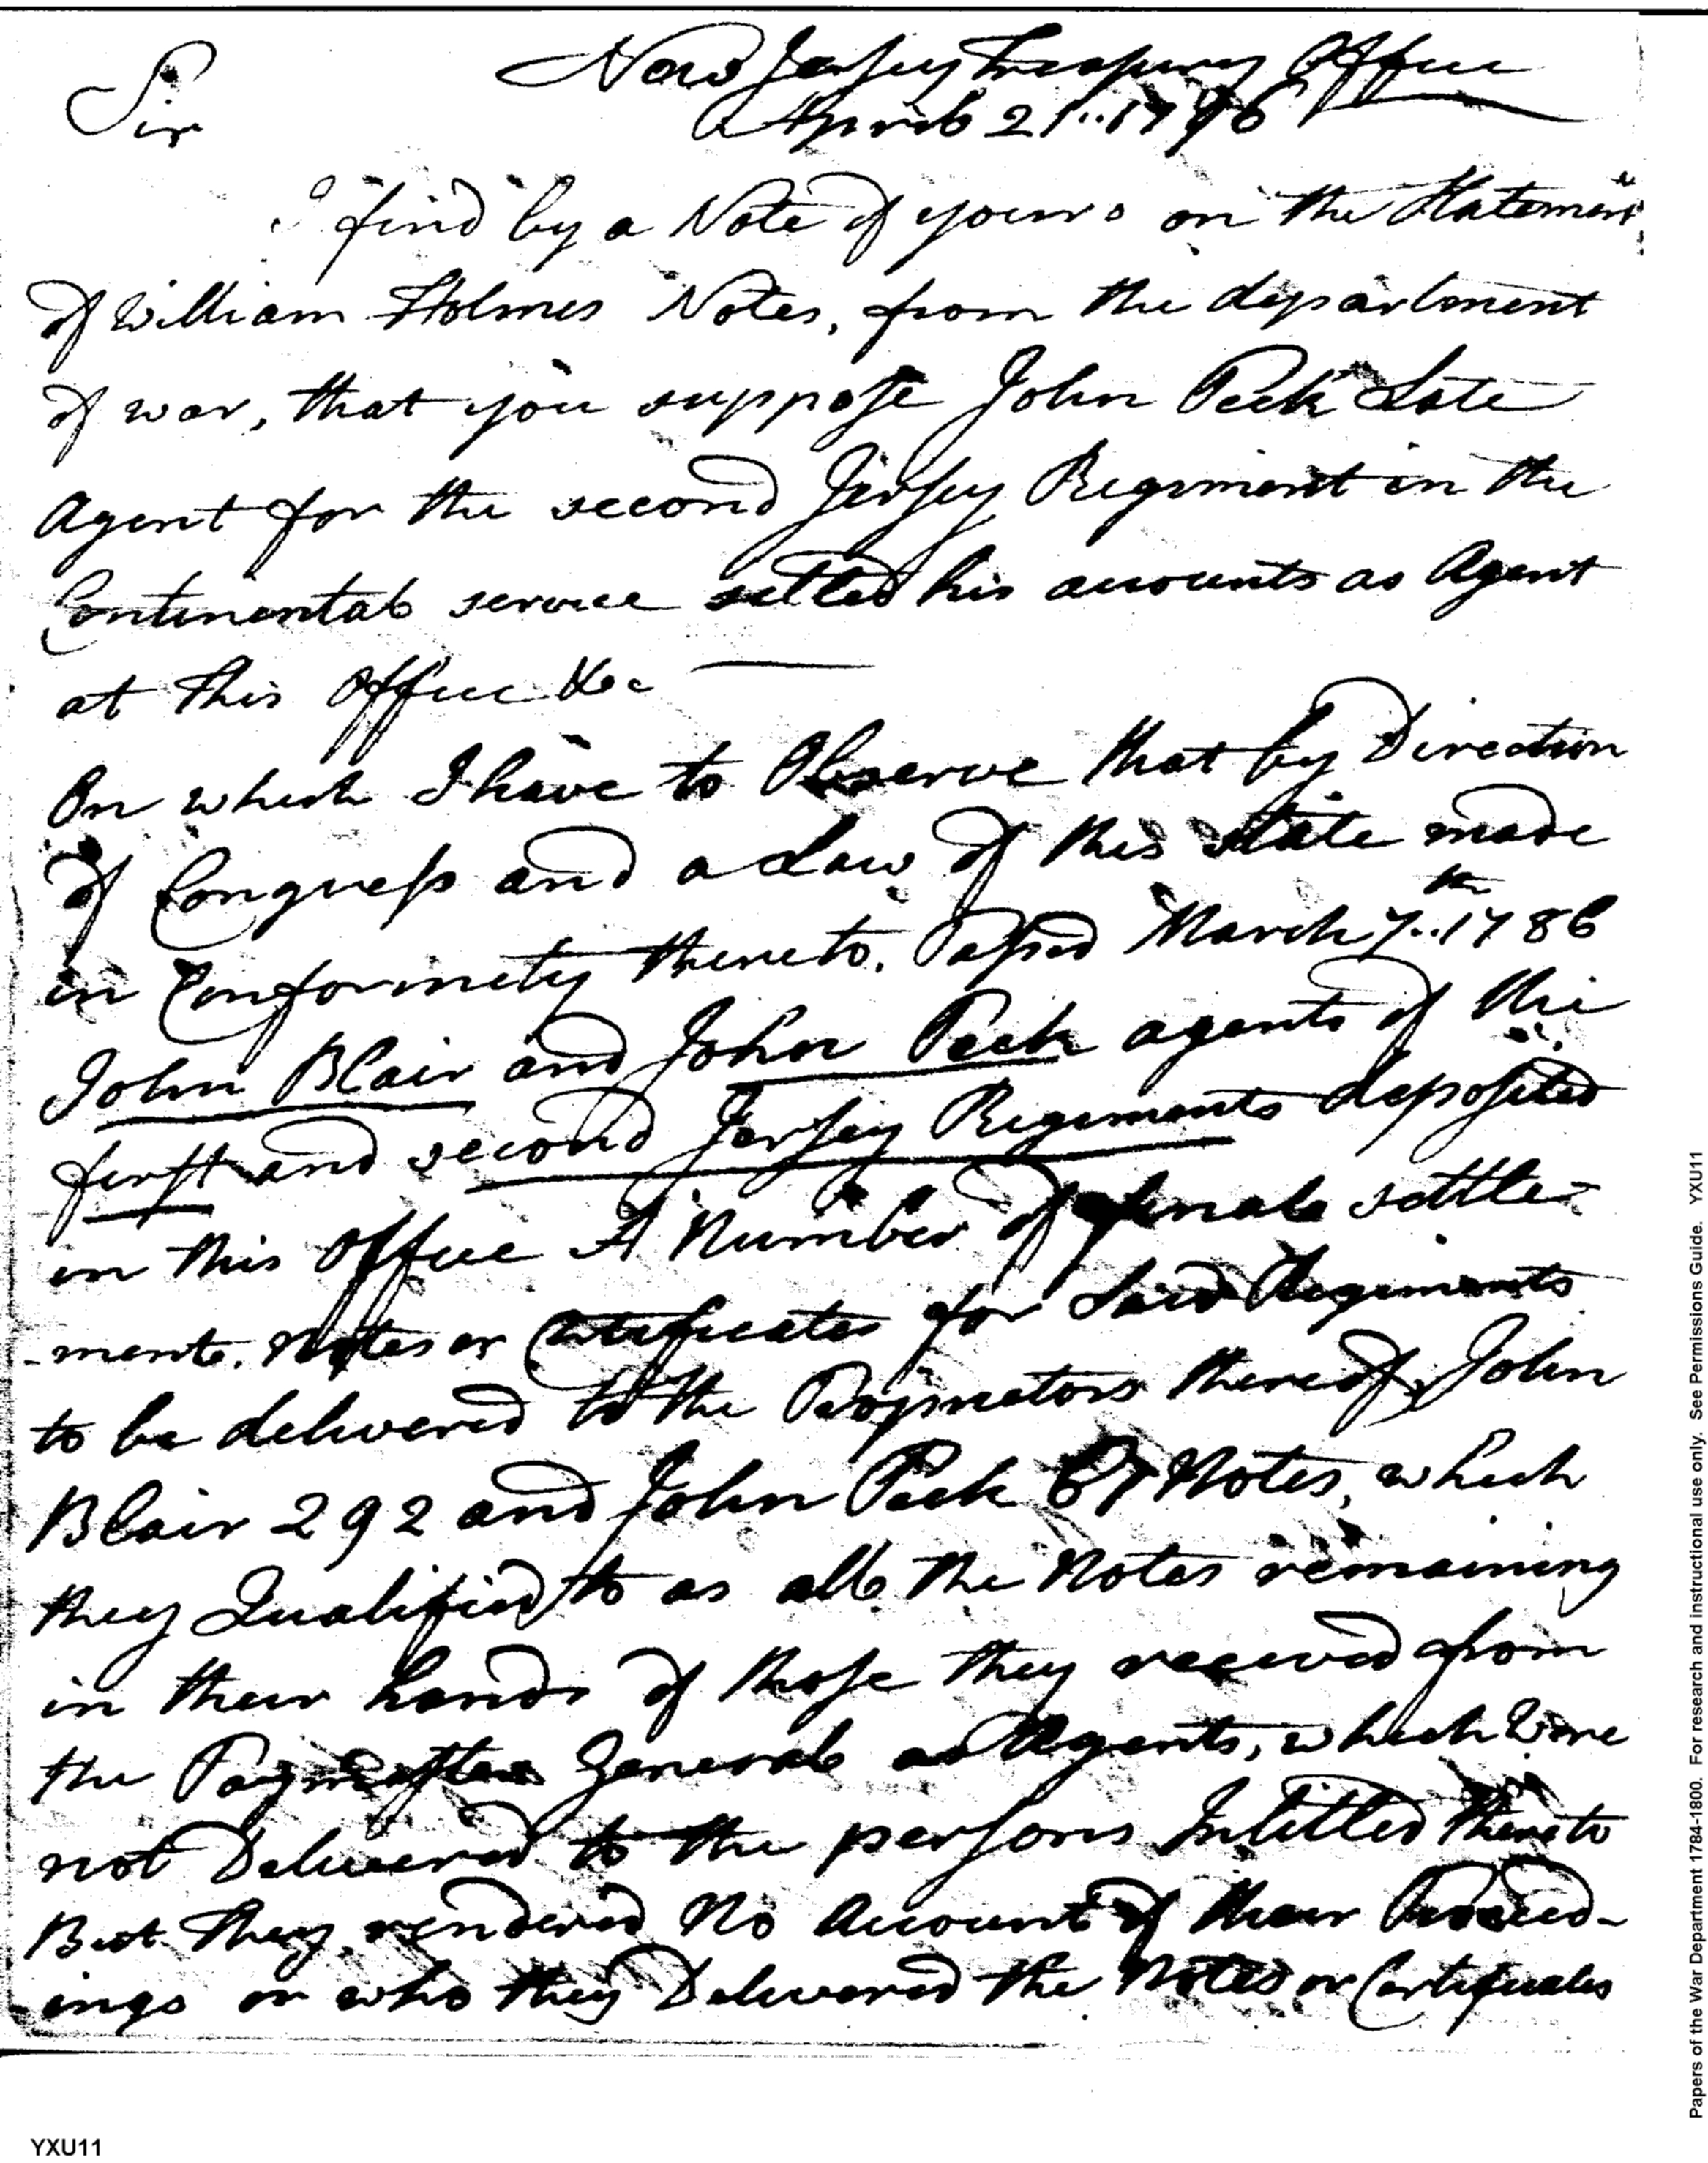 New Jersey Treasury Office
April 21.. 1796
Sir
I find by a Note of yours on the Statement
of William Holmes Notes, from the department
of war, that you suppose John Peck Late
Agent for the second Jersey Regiment in the
Continental service settled his accounts as Agent
at this Office &c
On which I have to Observe that by Direction
of Congress and a Law of this state made
in Conformity thereto, Passed March 7..th 1786
John Blair and John Peck agents of the
first and second Jersey Regiments deposited
in this Office A Number of final settle-
-ments. Notes or Certificates for said Regiments
to be delivered to the Proprietors thereof, John
Blair 292 and John Peck 67 Notes, which
they Qualified to as all the Notes remaining
in their hands of those they received from
the Paymaster General as Agents, which Were
not Delivered to the persons Intitled thereto
But they rendered No Account of their Proceed-
-ings or who they Delivered the Notes or Certificates
Papers of the War Department 1784-1800. For research and instructional use only. See Permissions Guide. YXU11
YXU11